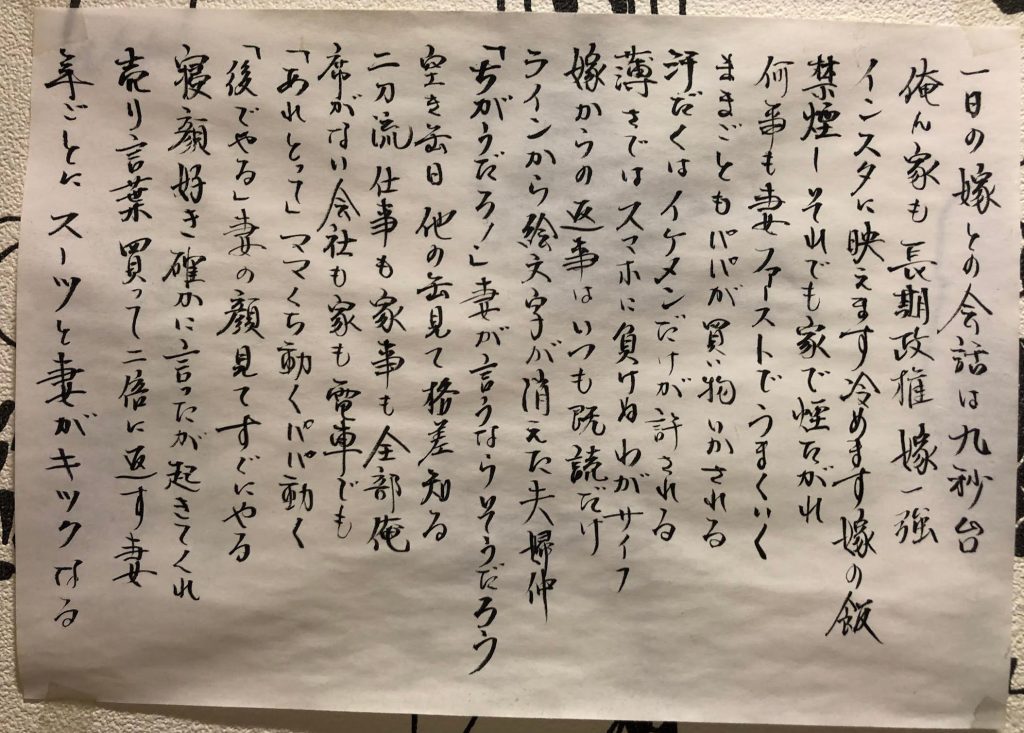 一日の嫁との会話は九秒台
俺ん家も長期政権嫁一強
インスタに映えます冷めます嫁の飯
禁煙しそれでも家で煙たがれ
何事も妻ファーストでうまくいく
ままごともパパが買い物いかされる
汗だくはイケメンだけが許される
薄さではスマホに負けぬわがサイフ
嫁からの返事はいつも既読だけ
ラインから絵文字が消えた夫婦仲
「ちがうだろー」妻が言うならそうだろう
空き缶日他の缶見て格差知る
二刀流仕事も家事も全部俺
席がない会社も家も電車でも
「あれとって」ママくち動くパパ動く
「後でやる」妻の顔見てすぐにやる
寝顔好き確かに言ったが起きてくれ
売り言葉買って二倍に返す妻
年ごとにスーツと妻がキツクなる